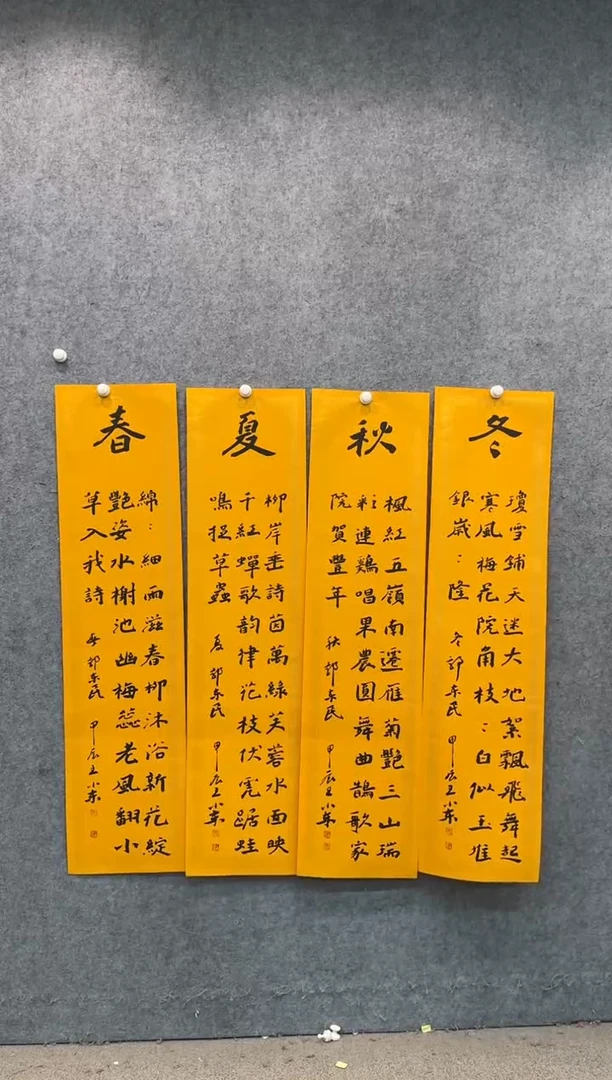 春
綿〻細雨滋春柳沐浴新花綻
艷姿水榭池幽梅蕊老風翻小
草入我詩 春 郭东民 甲辰王小东
夏
柳岸垂詩茵萬綠芙蓉水面映
千紅蟬歌韵律花枝伏虎踞蛙
鳴捉草蟲 夏 郭东民 甲辰王小东
秋
楓紅五嶺南遷雁菊艷三山瑞
彩連鷄唱果農圓舞曲鵲歌家
院賀豐年 秋 郭东民 甲辰王小东
冬
瓊雪鋪天迷大地絮飄飛舞起
寒風梅花院角枝〻白似玉堆
銀歲〻隆 冬 郭东民 甲辰王小东